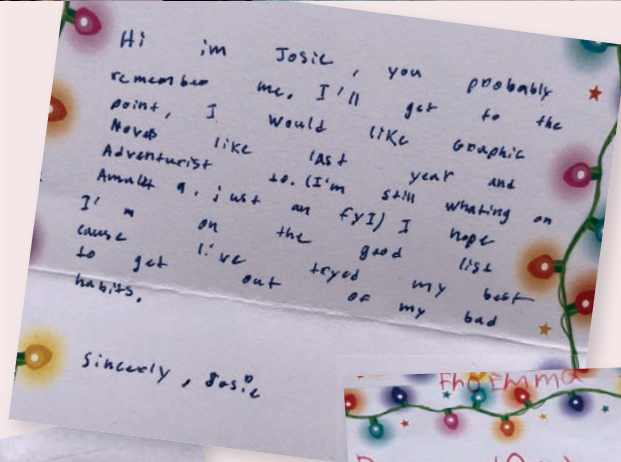 Hi im Josie, you probably
remember me. I'll get to the
point, I would like Graphic
Novels like last year and
Adventurist to. (I'm still whating on
9, just an fyI) I hope
I'm on the good list
cause I've tryed my best
to get out of my bad
habits.
Sincerly, Josie
Emma